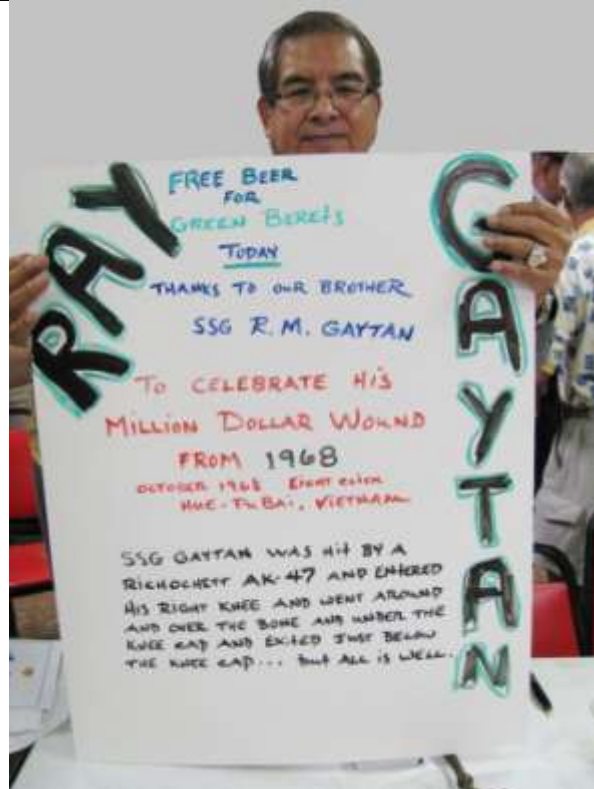 RAY
GAYTAN
FREE BEER
FOR
GREEN BERETS
TODAY
THANKS TO OUR BROTHER
SSG R. M. GAYTAN
TO CELEBRATE HIS
MILLION DOLLAR WOUND
FROM 1968
OCTOBER 1968 EIGHT
HUE-PHU BAI, VIETNAM
SSG GAYTAN WAS HIT BY A
RICHOCHETT AK-47 AND ENTERED
HIS RIGHT KNEE AND WENT AROUND
AND OVER THE BONE AND UNDER THE
KNEE CAP AND EXITED JUST BELOW
THE KNEE CAP... BUT ALL IS WELL.